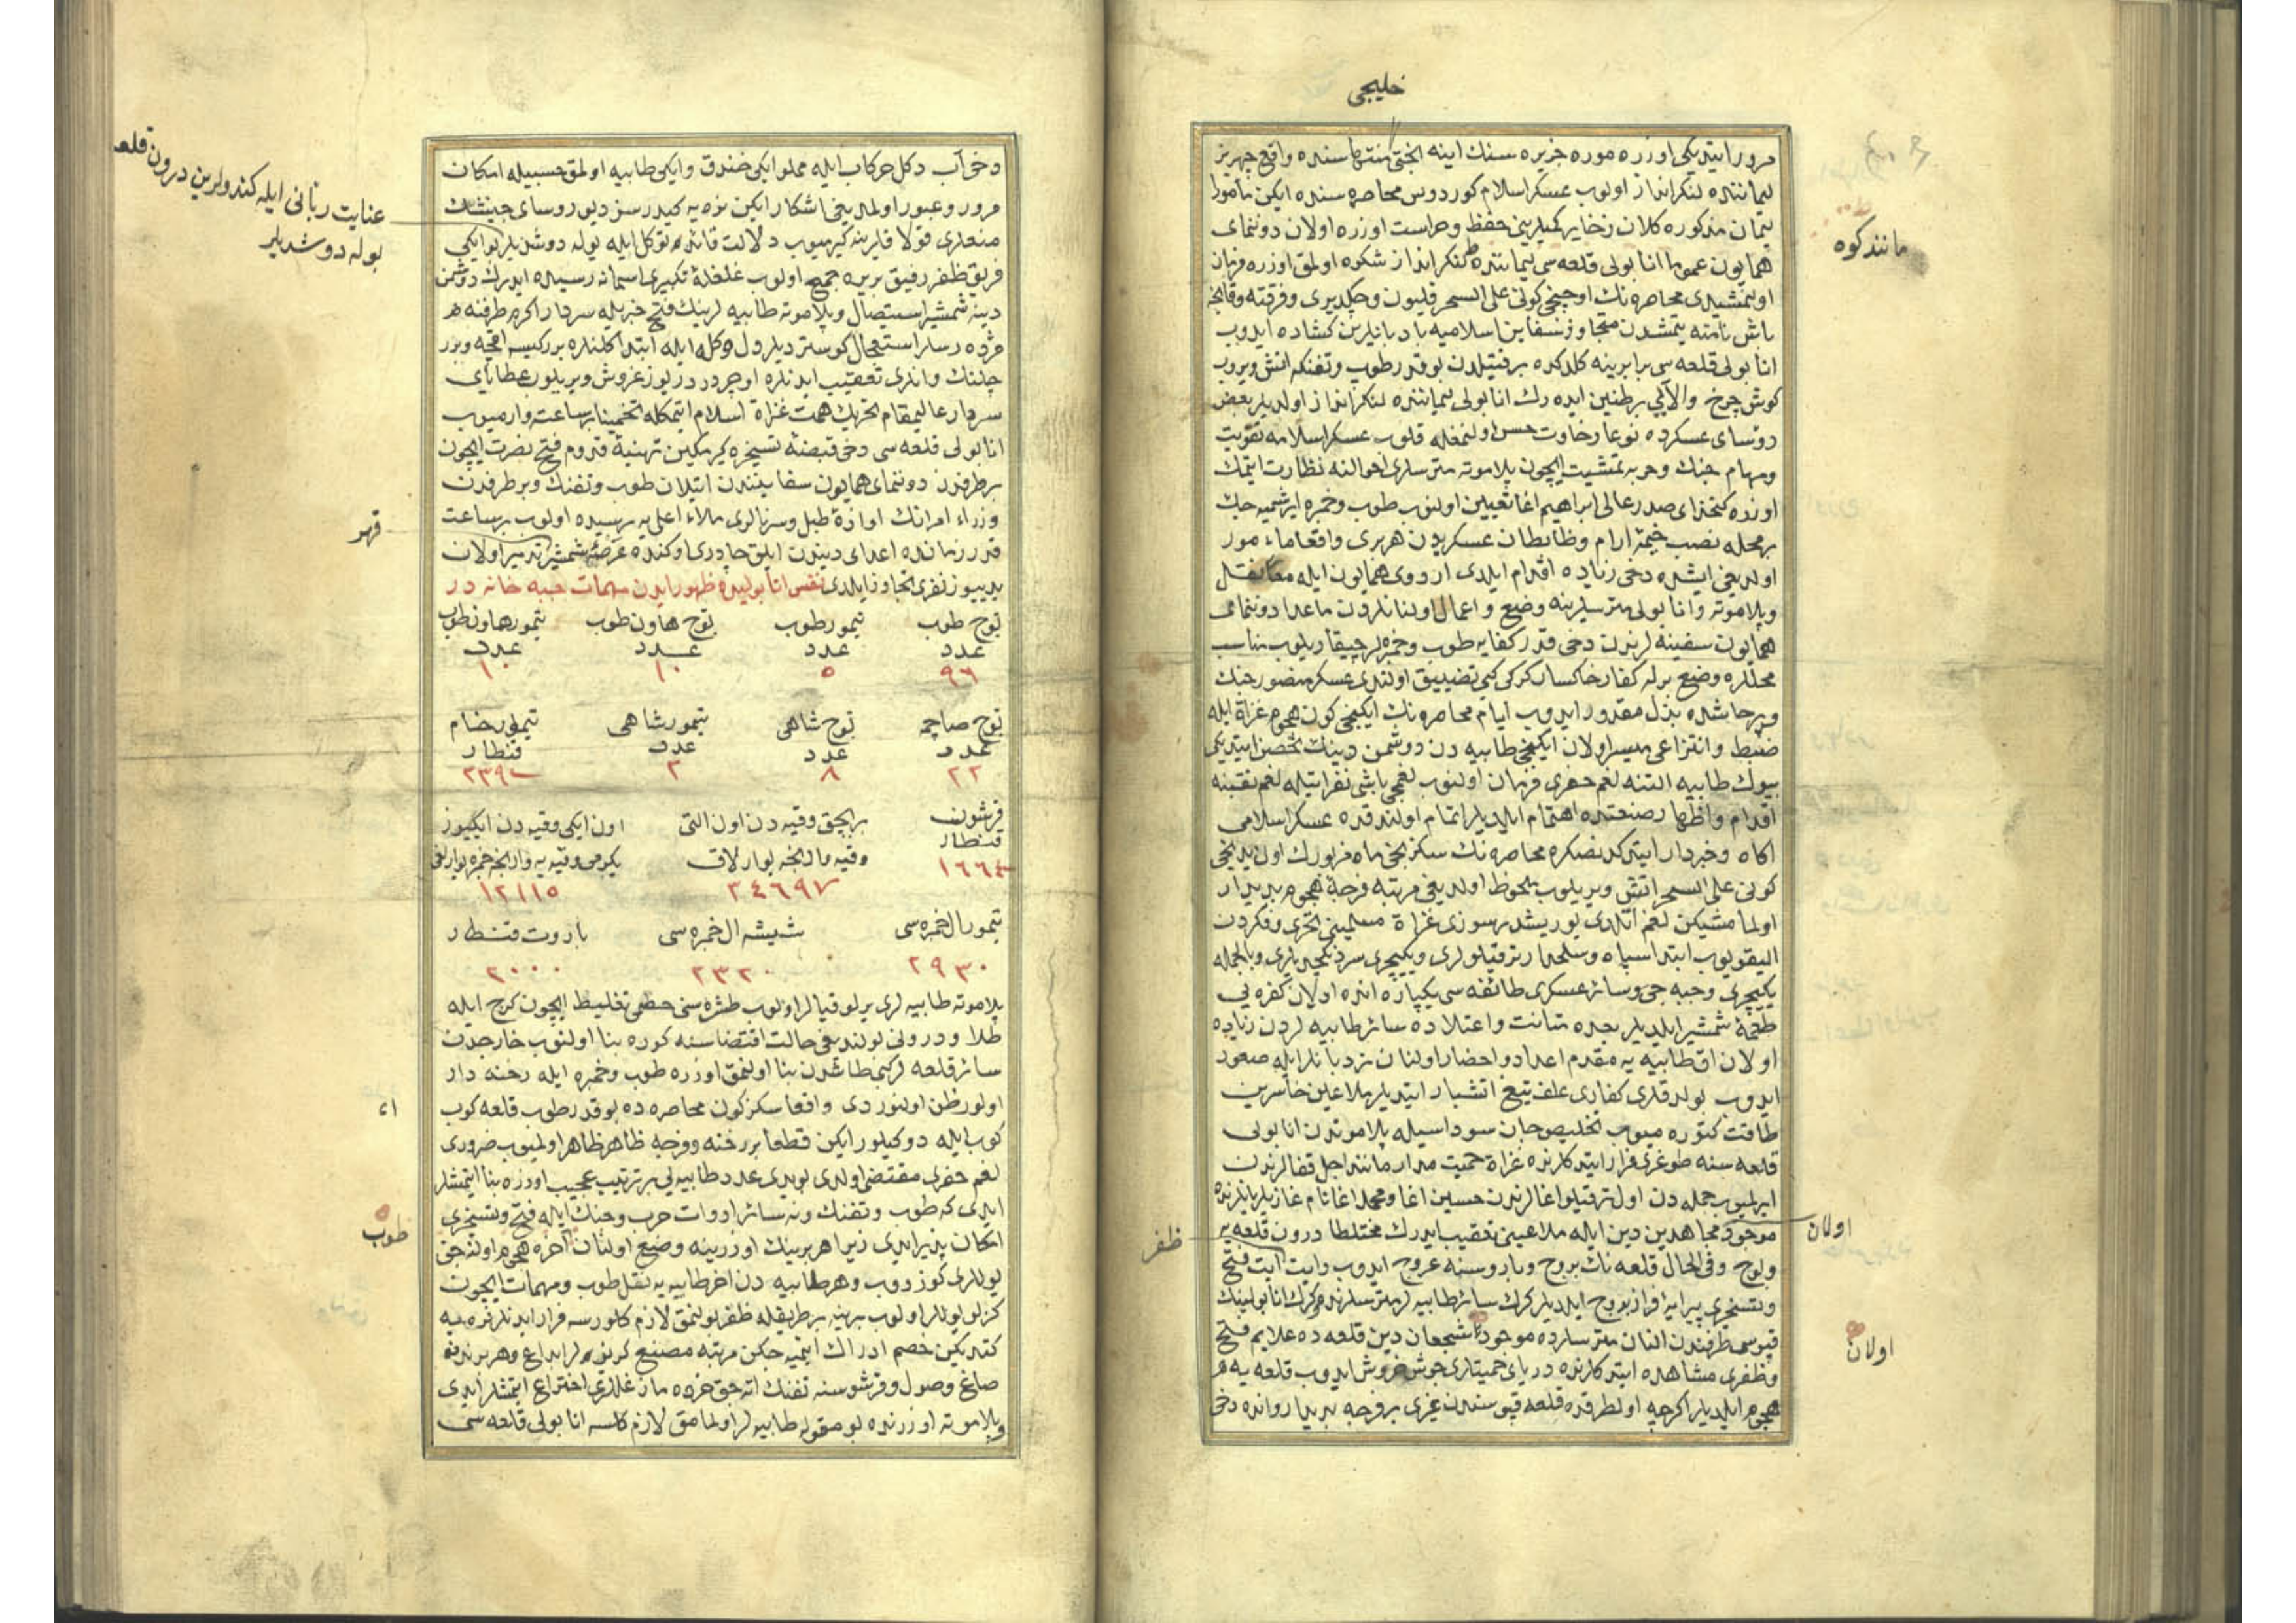 خلیجی
مرور ایتدیکی اوزره موره جزیره سنك اینه بختی منتهاسنده واقع
لیماننده لنکرانداز اولوب عسکر اسلام کوردوس محاصره سنده ایکن مأمورا
لیمان مذکوره کلان ذخایر کمیلرینی حفظ وحراست اوزره اولان دوننمای
همایون عموما انابولی قلعه سی لیماننده لنکرانداز شکوه اولمق اوزره فرمان
اولنمشیدی محاصره نك اوچنجی کونی علی السحر قلیون وچکدیری وفرقته وقالیته
باش نامنه یتمشدن متجاوز سفاین اسلامیه بادبانلرین کشاده ایدوب
انابولی قلعه سی برابرینه کلدکده بر فتیلدن بو قدر طوب وتفنکه اتش ویروب
کوش چرخ والایی پرطنین ایده رك انابولی لیماننده لنکرانداز اولدیلر بعض
رؤسای عسکرده نوعا رخاوت حس اولنمغله قلوب عسکر اسلامه تقویت
ومهام جنك وحربه تمشیت ایچون پلاموته متریسلری احوالنه نظارت ایتمك
اوزره کتخدای صدر عالی ابراهیم اغا تعیین اولنوب طوب وخمبره ایرشمیه جك
بر محله نصب خیمهٔ ارام وظابطان عسکریدن هر بری واقعا مأمور
اولدیغی ایشده دخی زیاده اقدام ایلدی اردوی همایون ایله معا نقل
وپلاموته وانابولی متریسلرینه وضع واعمال اولنانلردن ماعدا دوننمای
همایون سفینه لرندن دخی قدر کفایه طوب وخمبره لر چیقاریلوب مناسب
محللره وضع برله کفار خاکسار کرکی کبی تضییق اولندی عسکر منصور جنك
وپرخاشده بذل مقدور ایدوب ایام محاصره نك ایکنجی کون هجوم غزاة ایله
ضبط وانتزاعی میسر اولان ایکنجی طابیه دن دوشمن دینك تحصن ایتدیکی
بیوك طابیه التنه لغم حفری فرمان اولنوب لغمجی باشی نفراتیله لغم نقبینه
اقدام واظهار صنعتده اهتمام ایلدیلر اتمام اولندقده عسکر اسلامی
اکاه وخبردار ایتدکدنصکره محاصره نك سکزنجی ماه مزبورك اون یدنجی
کونی علی السحر اتش ویریلوب ملحوظ اولدیغی مرتبه فرجهٔ هجوم بدیدار
اولمامشیکن لغم اتلدی یوریشدر سوزی غزاة مسلمینی تحری وفکردن
الیقویوب ابتدا سپاه وسلحدار ترقیلولری ویکیچری سردنکچدیلری وبالجمله
یکیچری وجبه جی وسائر عسکری طائفه سی یکپاره انده اولان کفره یی
طعمهٔ شمشیر ایلدیلر بعده متانت واعتلاده سائر طابیه لردن زیاده
اولان اق طابیه یه مقدم اعداد واحضار اولنان نردبانلر ایله صعود
ایدوب بولدقلری کفاری علف تیغ اتشبار ایتدیلر ملاعین خاسرین
طاقت کتوره میوب تخلیص جان سوداسیله پلاموتدن انابولی
قلعه سنه طوغری فرار ایتدکلرنده غزاة حمیت مدار مانند اجل قفالرندن
ایرلمیوب جمله دن اول ترقیلو اغالرندن حسین اغا ومحمد اغا نام غازیلر یانلرنده
موجود مجاهدین دین ایله ملاعینی تعقیب ایدرك مختلطا درون قلعه یه
ولوج وفی الحال قلعه نك بروج وباروسنه عروج ایدوب رایت ایت فتح
وتسخیری پیرایه افراز بروج ایلدیلر کرك سائر طابیه لر متریسلرنده وکرك انابولینك
قپوسی طرفندن النان متریسلرده موجود شجعان دین قلعه ده علایم فتح
وظفری مشاهده ایتدکلرنده دریای حمیتلری جوش وخروش ایدوب قلعه یه
هجوم ایلدیلر اکرچه اولطرفده قلعه قپوسندن غیری بر فرجه بدیدار وانده دخی
مانند کوه
اولان
ظفر
اولان
دخی آب دکل حرکاب ایله مملو ایکی خندق وایکی طابیه اولمق حسبیله امکان
مرور وعبور اولمدیغی اشکار ایکن نره یه کیدرسز دیو رؤسای جیشك
منعلری قولاقلرینه کیرمیوب دلالت قائد توکل ایله یوله دوشدیلر بو ایکی
فریق ظفر رفیق بریره جمع اولوب غلغلهٔ تکبیری اسمانه رسیده ایدرك دوشمن
دینه شمشیر استیصال وپلاموته طابیه لرینك فتحی خبریله سردار اکرم طرفنه
مژده رسلر استعجال کوستردیلر اول وهله ایله ابتدا کلنلره برر کیسه اقچه وبرر
چلنك وانلری تعقیب ایدنلره اوچر دردر یوز غروش ویریلور عطایای
سردار عالیمقام تحریك همت غزاة اسلام ایتمکله تخمینا بر ساعته وارمیوب
انابولی قلعه سی دخی قبضهٔ تسخیره کیرمکین تهنیهٔ قدوم فتح نصرت ایچون
بر طرفدن دوننمای همایون سفاینندن اتیلان طوب وتفنك وبر طرفدن
وزراء امرانك اوازهٔ طبل وسرنالری ملاء اعلی یه رسیده اولوب بر ساعت
قدر زمانده اعدای دیندن ایلق چادری اوکنده عرضهٔ شمشیر تدمیر اولان
یدییوز نفری تجاوز ایلدی نفس انابولیده ظهور ایدن مهمات جبه خانه در
توج طوب تیمور طوب توج هاون طوب تیمور هاون طوب
عدد عدد عدد عدد
٩٦ ٥ ١٠ ١٠
توج صاچمه توج شاهی تیمور شاهی تیمور خام
عدد عدد عدد قنطار
٢٢ ٨ ٢
قرشون بربچق وقیه دن اون التی اون ایکی وقیه دن ایکیوز
قنطار وقیه وارنجه یوارلاق یکرمی وقیه یه وارنجه خمبره یوارلغی
٣٤٦٩٧ ١٢١١٥
تیمور ال خمبره سی شیشه ال خمبره سی باروت قنطار
٢٩٣٠ ٢٣٢٠ ٢٠٠٠
پلاموته طابیه لری یرلو قیالر اولوب طشره سنی خصمی تغلیط ایچون کرج ایله
طلا ودرونی بولندیغی حالت اقتضاسنه کوره بنا اولنوب خارجدن
سائر قلعه لر کبی طاشدن بنا اولنمق اوزره طوب وخمبره ایله رخنه دار
اولور ظن اولنوردی واقعا سکز کون محاصره ده بو قدر طوب قلعه کوب
کوب ایله دوکیلور ایکن قطعا بر رخنه وفرجه ظاهر ظاهر اولمیوب ضروری
لغم حفری مقتضی اولدی بو یدی عدد طابیه یی بر ترتیب عجیب اوزره بنا ایتمشلر
ایدی که طوب وتفنك ونه سائر ادوات حرب وجنك ایله فتح وتسخیری
امکان پذیر ایدی زیرا هر برینك اوزرینه وضع اولنان اخره هجوم اولنه جق
یوللری کوزدوب وهر طابیه دن اخر طابیه یه نقل طوب ومهمات ایچون
کزلو یوللر اولوب برینه بر طریقله ظفر بولنمق لازم کلورسه فرار ایدنلر نره یه
کتدیکین خصم ادراك ایتمیه جکن مرتبه مصنع کرنه لر ابداع وهر برنده
صاغ وصول وقرشوسنه تفنك اته جق خرده مازغللری اختراع ایتمشلر ایدی
وپلاموته اوزرنده بو مقوله طابیه لر اولمامق لازم کلسه انابولی قلعه سی
عنایت ربانی ایله کندولرین درون قلعه
یوله دوشدیلر
قهر
طوب